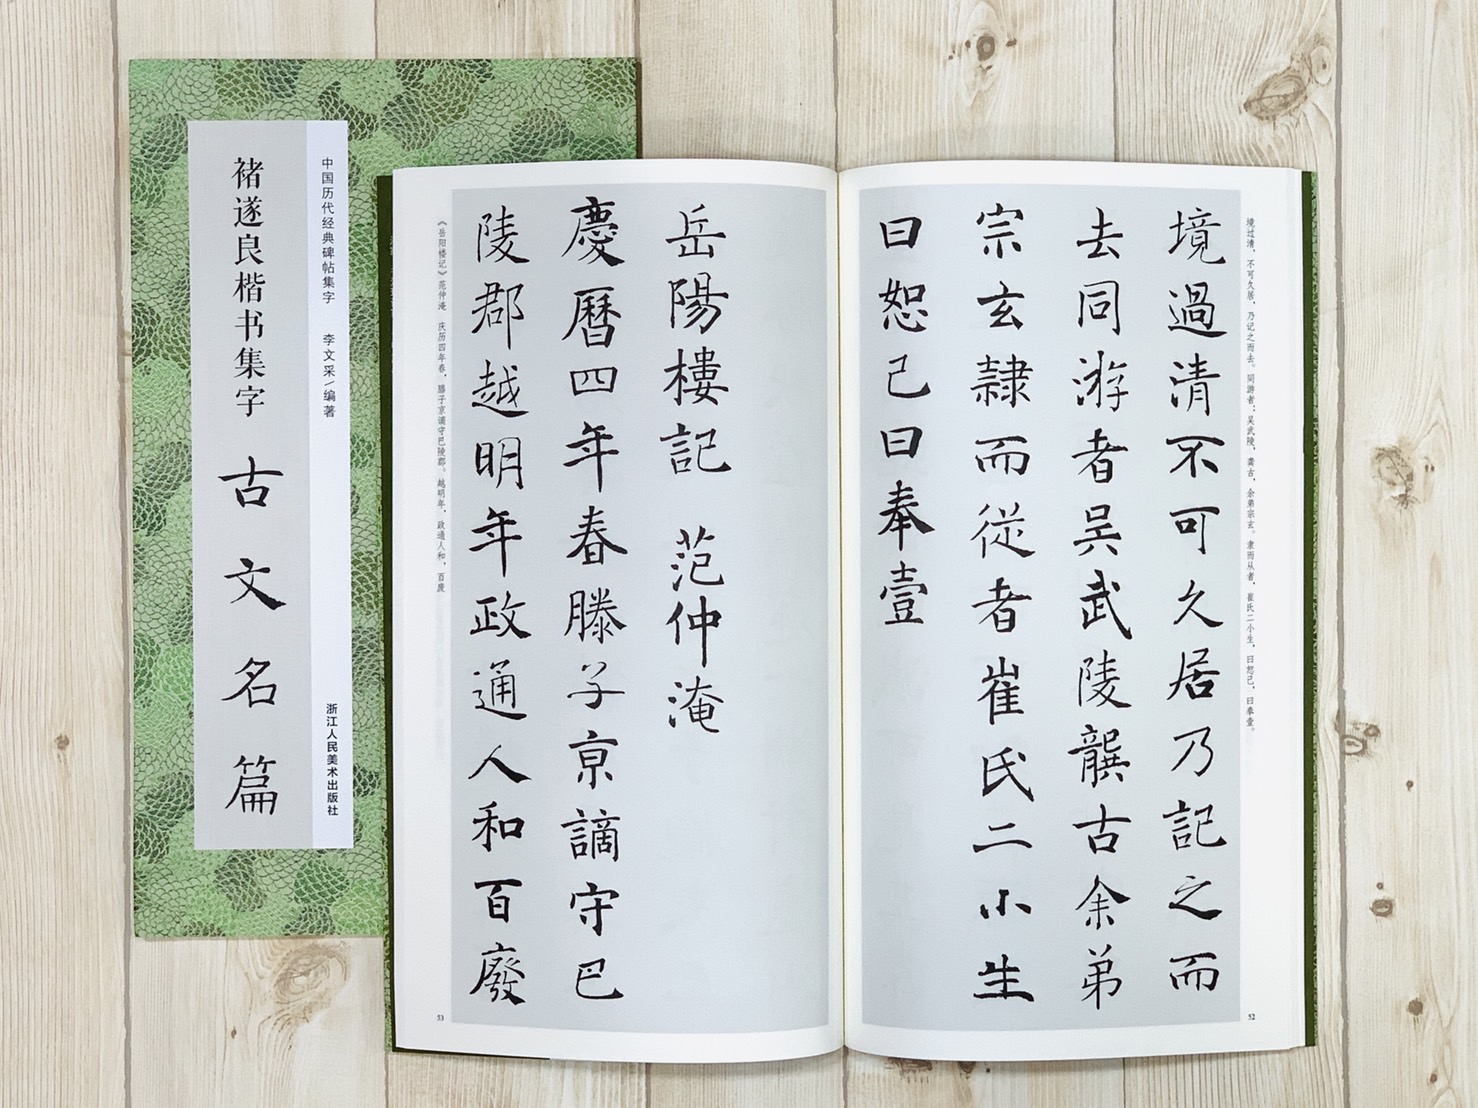 褚遂良楷书集字 古文名篇
中国历代经典碑帖集字 李文采/编著
浙江人民美术出版社
境过清，不可久居，乃记之而去。同游者：吴武陵，龚古，余弟宗玄。隶而从者，崔氏二小生，曰恕己，曰奉壹。
境過清不可久居乃記之而
去同游者吴武陵龔古余弟
宗玄隸而從者崔氏二小生
曰恕己曰奉壹
52
岳陽樓記 范仲淹
慶曆四年春滕子京謫守巴
陵郡越明年政通人和百廢
《岳阳楼记》范仲淹 庆历四年春，滕子京谪守巴陵郡。越明年，政通人和，百废
53